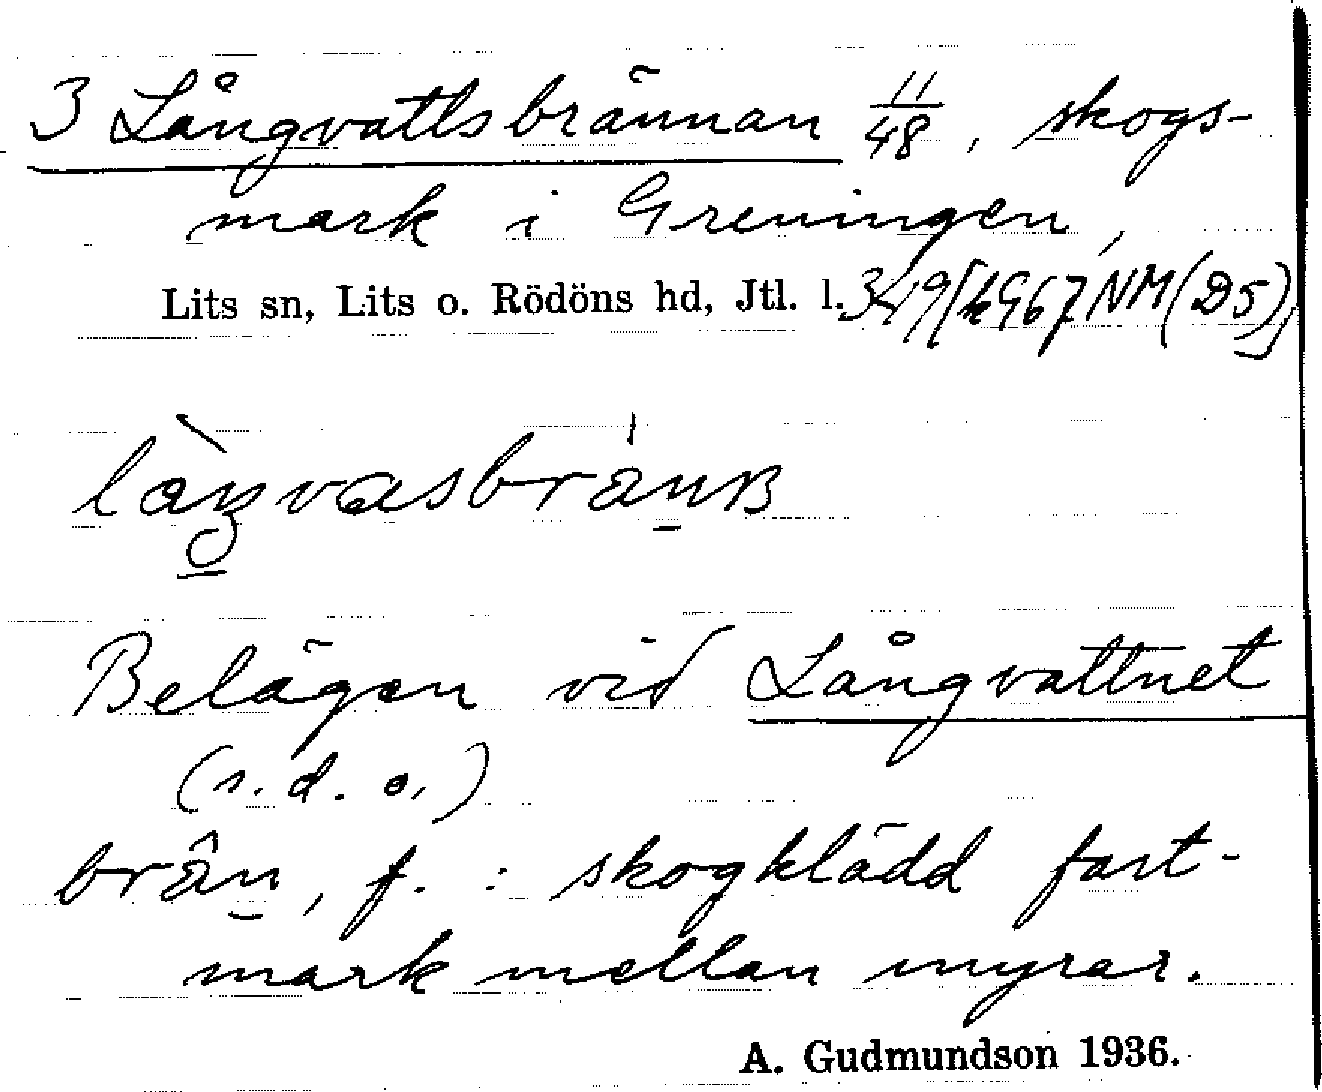 3 Långvattsbrännan 11/48, skogs-
mark i Greningen,
Lits sn, Lits o. Rödöns hd, Jtl. l. NM(D5),
Belägen vid Långvattnet
(s. d. o.)
brân, f. : skogklädd fast-
mark mellan myrar.
A. Gudmundson 1936.